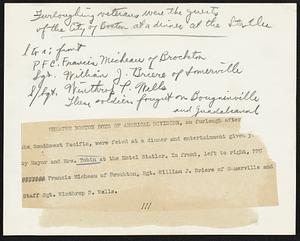 Furloughing veterans were the guests
of the City of Boston at a dinner at the Statler
L to R: front
P.F.C. Francis Micheau of Brockton
Sgt. William J. Briere of Somerville
S/Sgt. Winthrop P. Wells
These soldiers fought on Bougainville
and Guadalcanal
GREATER BOSTON BOYS OF AMERICAL DIVISION, on furlough after
the Southwest Pacific, were feted at a dinner and entertainment given
by Mayor and Mrs. Tobin at the Hotel Statler. In front, left to right, PFC
Francis Micheau of Brockton, Sgt. William J. Briere of Somerville and
Staff Sgt. Winthrop P. Wells.
///